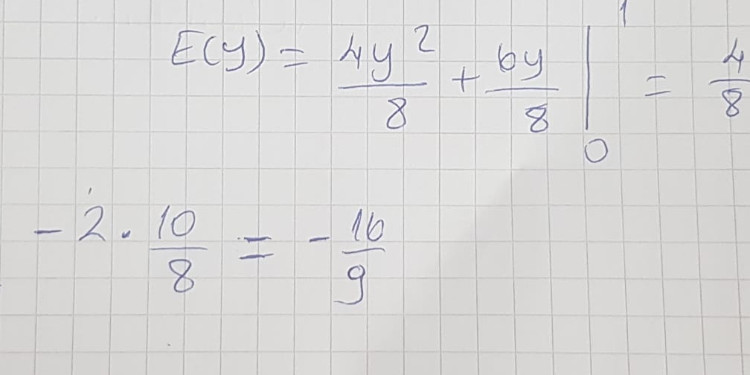 E(y) = 4y²/8 + 6y/8 |₀¹ = 4/8
- 2 · 10/8 = - 16/9